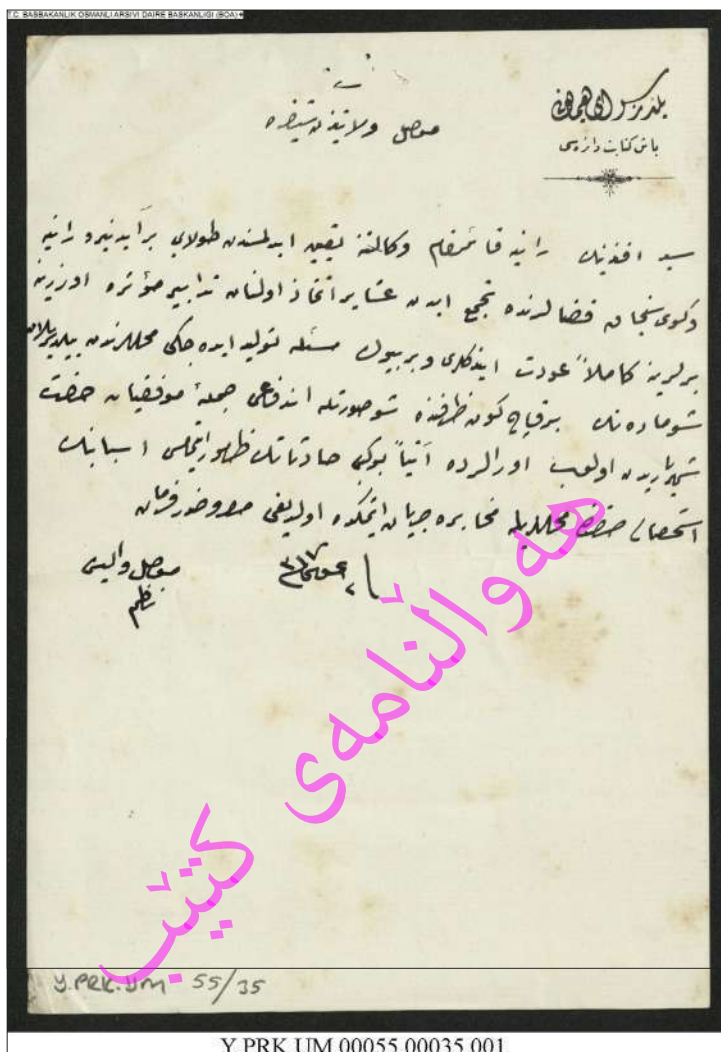 T.C. BASBAKANLIK OSMANLI ARSIVI DAIRE BASKANLIGI (BOA)
يلديز سراى همايونى
باش كتابت دائره‌سى
موصل ولايتندن شفره
سيد افندينك رانيه قائمقام وكالتنه تعيين ايدلمسندن طولايى رانيه
وكوى سنجاق قضالرنده تجمع ايدن عشاير اتخاذ اولنان تدابير مؤثره اوزرينه
يرلرينه كاملاً عودت ايتدكلرى وبر بيوك مسئله توليد ايده جكى محللرندن بيلديريلان
شو ماده نك برقاج كون ظرفنده شو صورتله اندفاعى جملۀ موفقيات حضرت
شهرياريدن اولوب اورالرده آتياً بوكبى حادثاتك ظهور ايتمامسى اسبابنك
استحصالى ضمننده محللريله مخابره جريان ايتمكده اولديغى معروضدر فرمان
موصل واليسى
هەواڵنامەی کتێب
Y.PRK.UM 55/35
Y.PRK.UM.00055.00035.001